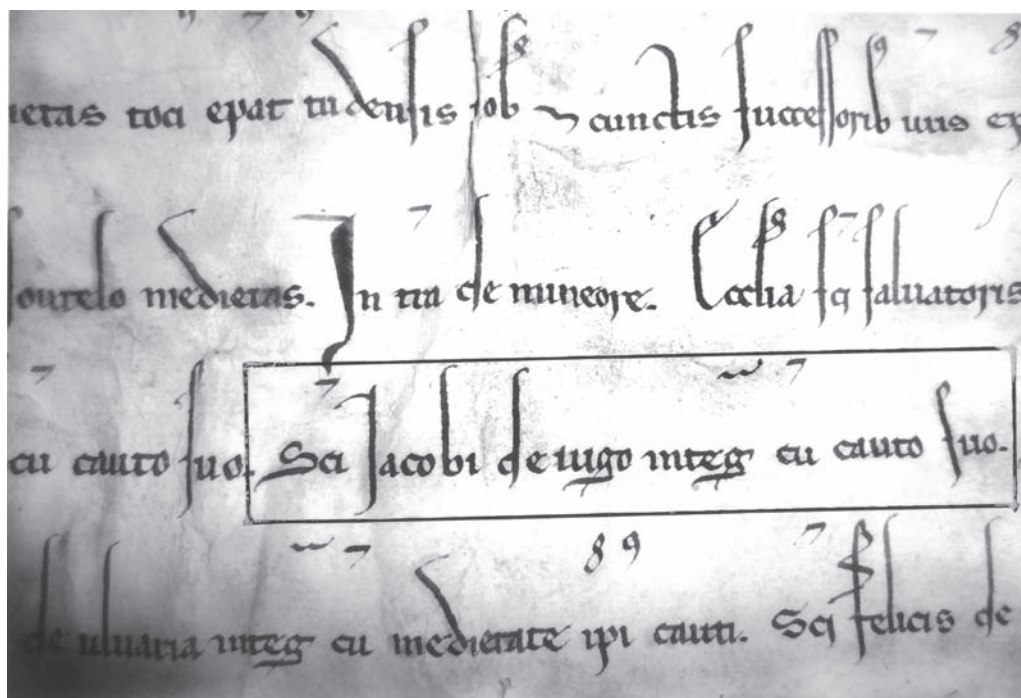 ietas toci epat tudensis uob 7 cunctis successorib uris ex
ontelo medietas. In tra de mineore. Ecclia sci saluatoris
cu cauto suo. Sci Jacobi de uigo integ cu cauto suo.
de uluaria integ cu medietate ipi cauti. Sci felicis de